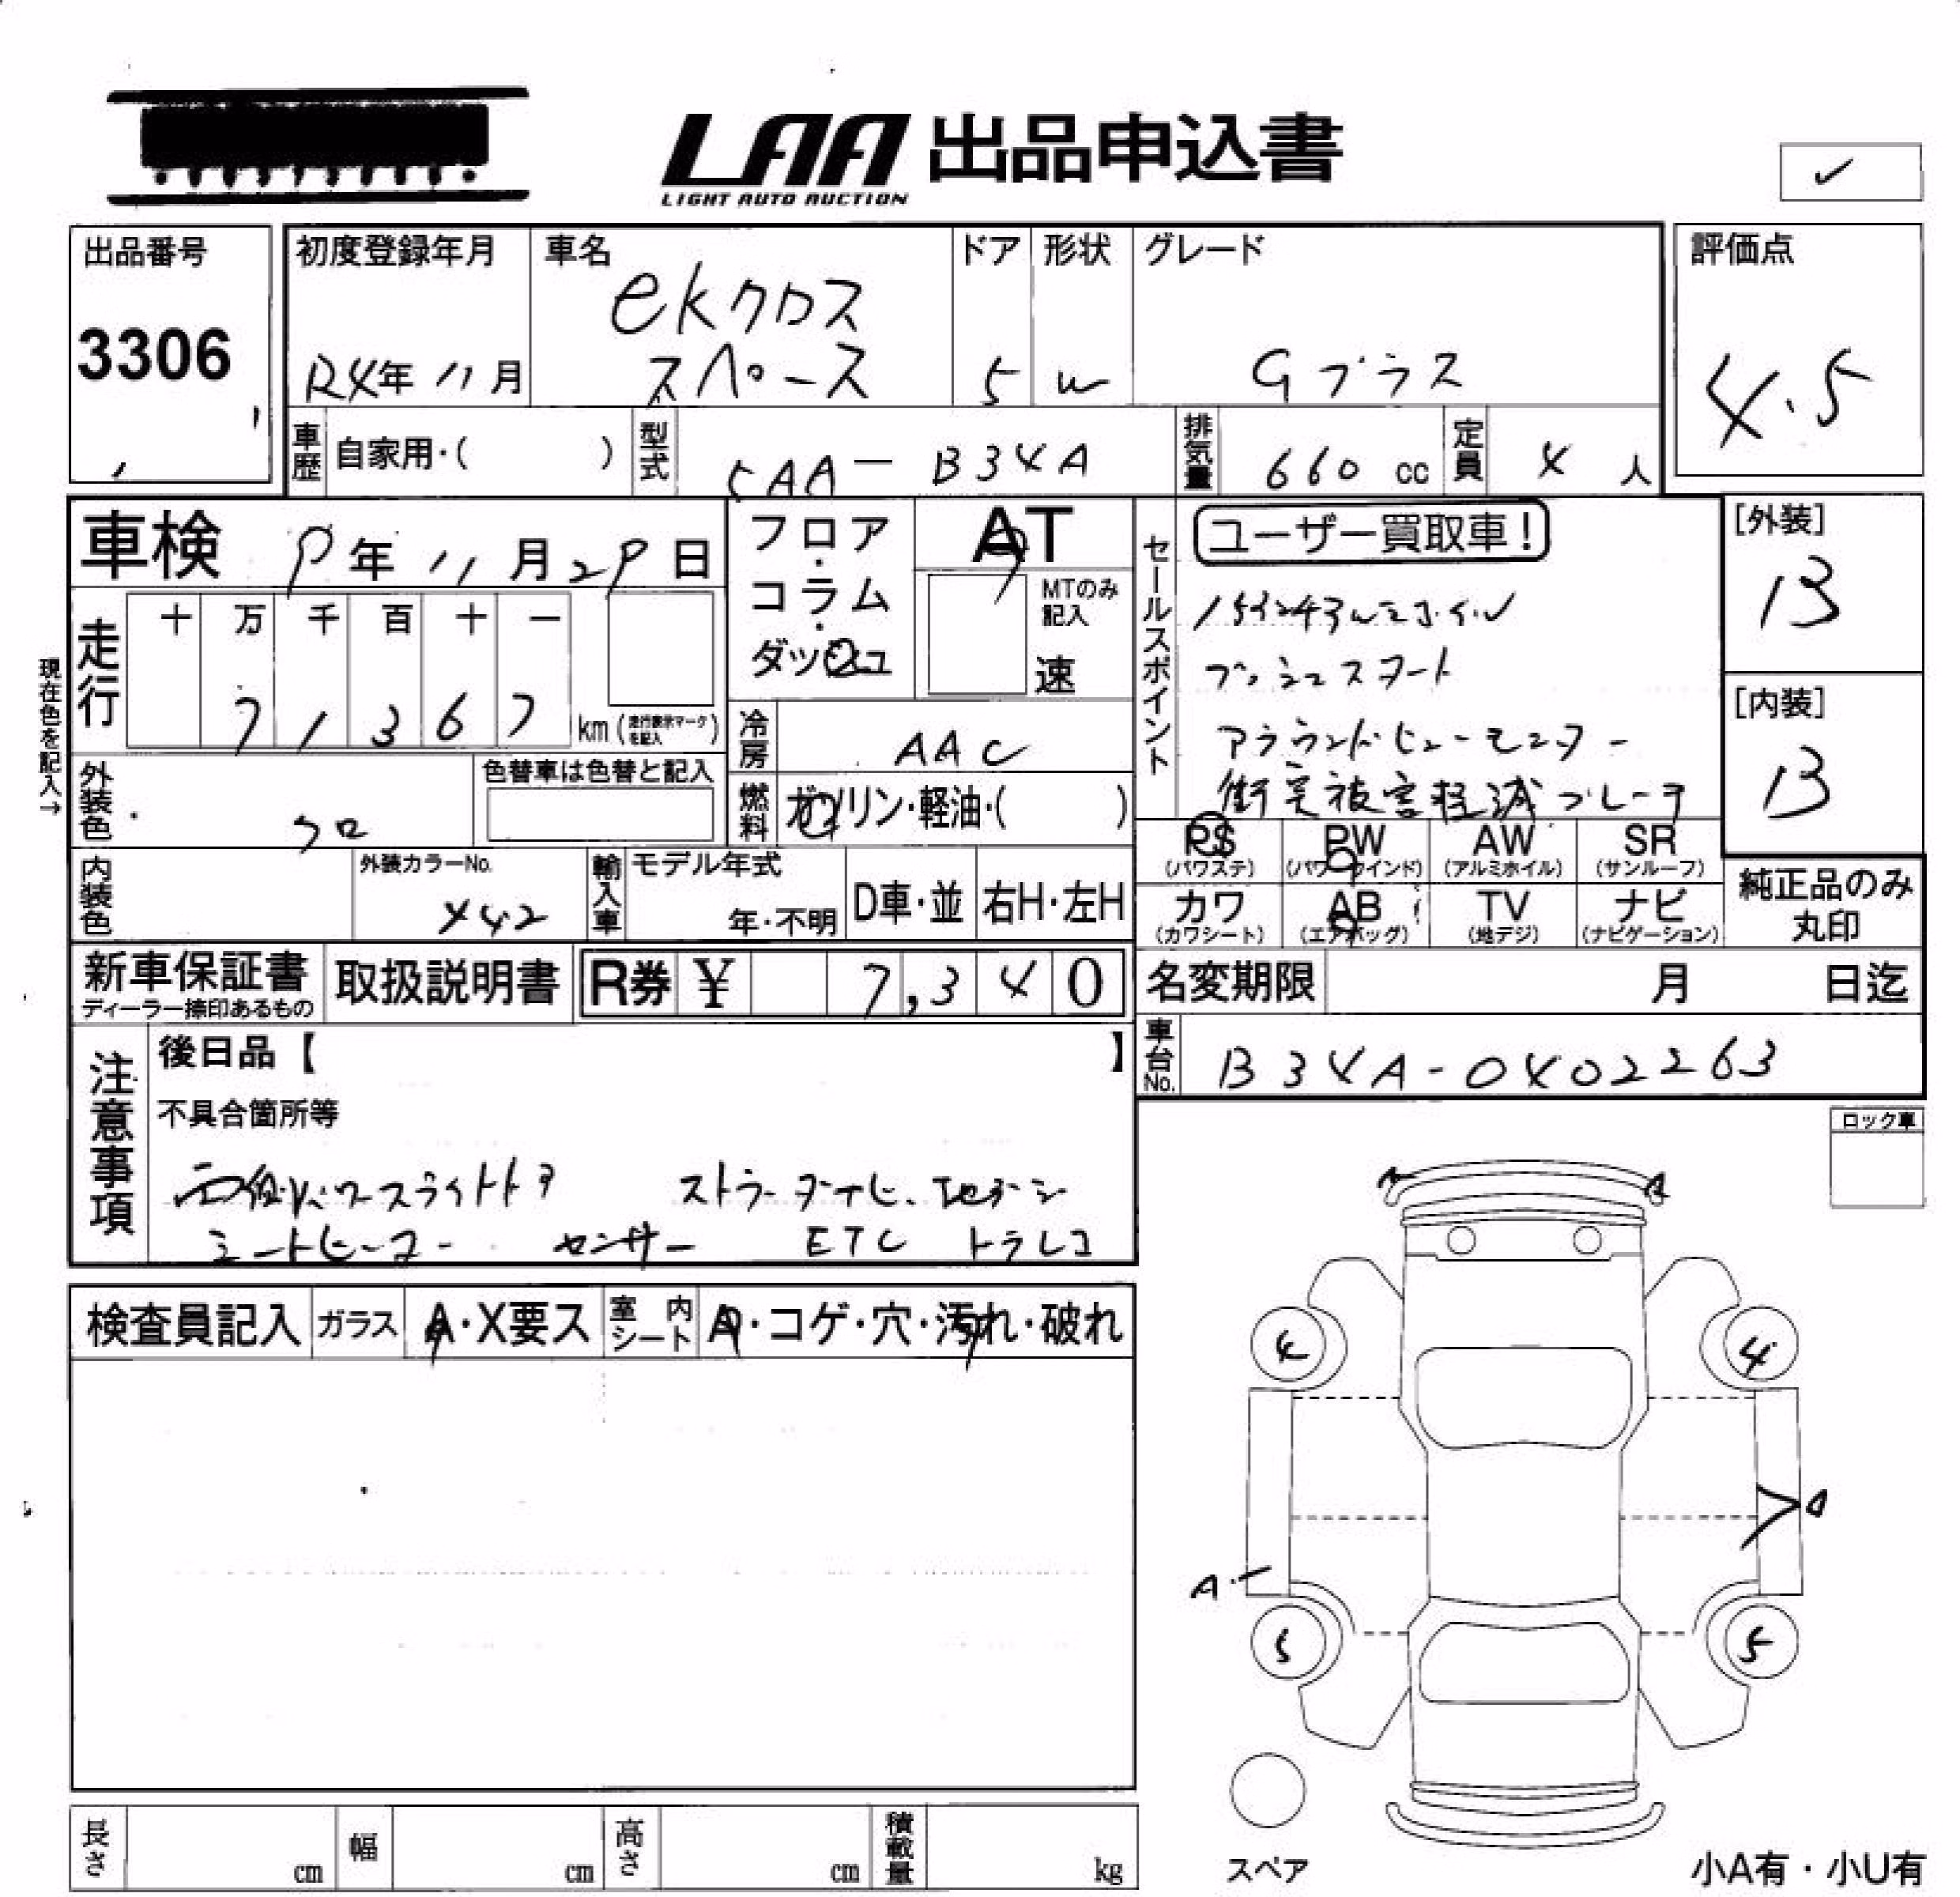 LAA 出品申込書
LIGHT AUTO AUCTION
✓
出品番号
3306
初度登録年月
R4年 11月
車名
ekクロス
スペース
ドア
5
形状
W
グレード
Gプラス
評価点
4.5
車歴 自家用・( )
型式 5AA-B34A
排気量 660 cc
定員 4 人
車検 9年 11月 29日
フロア・コラム・ダッシュ
AT
MTのみ記入
速
現在色を記入→
走行
十 万 千 百 十 一
7 1 3 6 7 km (走行表示マークを記入)
冷房 AAC
外装色 クロ
色替車は色替と記入
燃料 ガソリン・軽油・( )
内装色
外装カラーNo.
X42
輸入車
モデル年式
年・不明
D車・並
右H・左H
セールスポイント
ユーザー買取車!
プッシュスタート
アラウンドビューモニター
衝突被害軽減ブレーキ
[外装]
B
[内装]
B
PS (パワステ)
PW (パワーウインド)
AW (アルミホイル)
SR (サンルーフ)
カワ (カワシート)
AB (エアバッグ)
TV (地デジ)
ナビ (ナビゲーション)
純正品のみ
丸印
新車保証書
ディーラー捺印あるもの
取扱説明書
R券 ¥ 7,340
名変期限 月 日迄
車台No. B34A-0402263
注意事項
後日品【 】
不具合箇所等
両側パワースライドドア ストラーダナビ、地デジ
シートヒーター センサー ETC ドラレコ
ロック車
検査員記入
ガラス A・X要ス
室内シート A・コゲ・穴・汚れ・破れ
A
A
4
4
A
A
5
5
スペア
長さ cm
幅 cm
高さ cm
積載量 kg
小A有・小U有